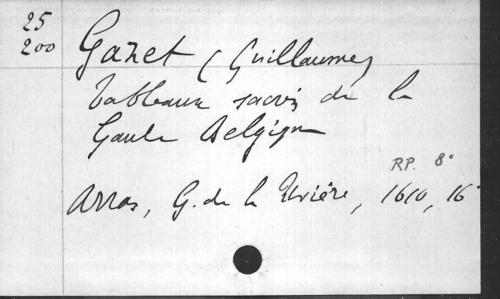 25
200
Gazet (Guillaume)
Tableaux sacrés de la
Gaule Belgique
RP. 8°
Arras, G. de la Rivière, 1610, 16°